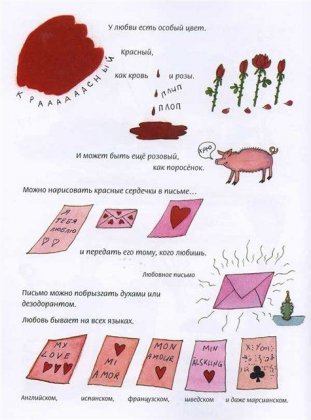 У любви есть особый цвет.
КРАААААСНЫЙ
Красный,
как кровь и розы.
ПЛИП
ПЛОП
И может быть ещё розовый,
как поросёнок.
ХРЮ
Можно нарисовать красные сердечки в письме...
Я
ТЕБЯ
ЛЮБЛЮ
и передать его тому, кого любишь.
Любовное письмо
Письмо можно побрызгать духами или
дезодорантом.
Любовь бывает на всех языках.
MY
LOVE
MI
AMOR
MON
AMOUR
MIN
ÄLSKLING
Английском, испанском, французском, шведском и даже марсианском.